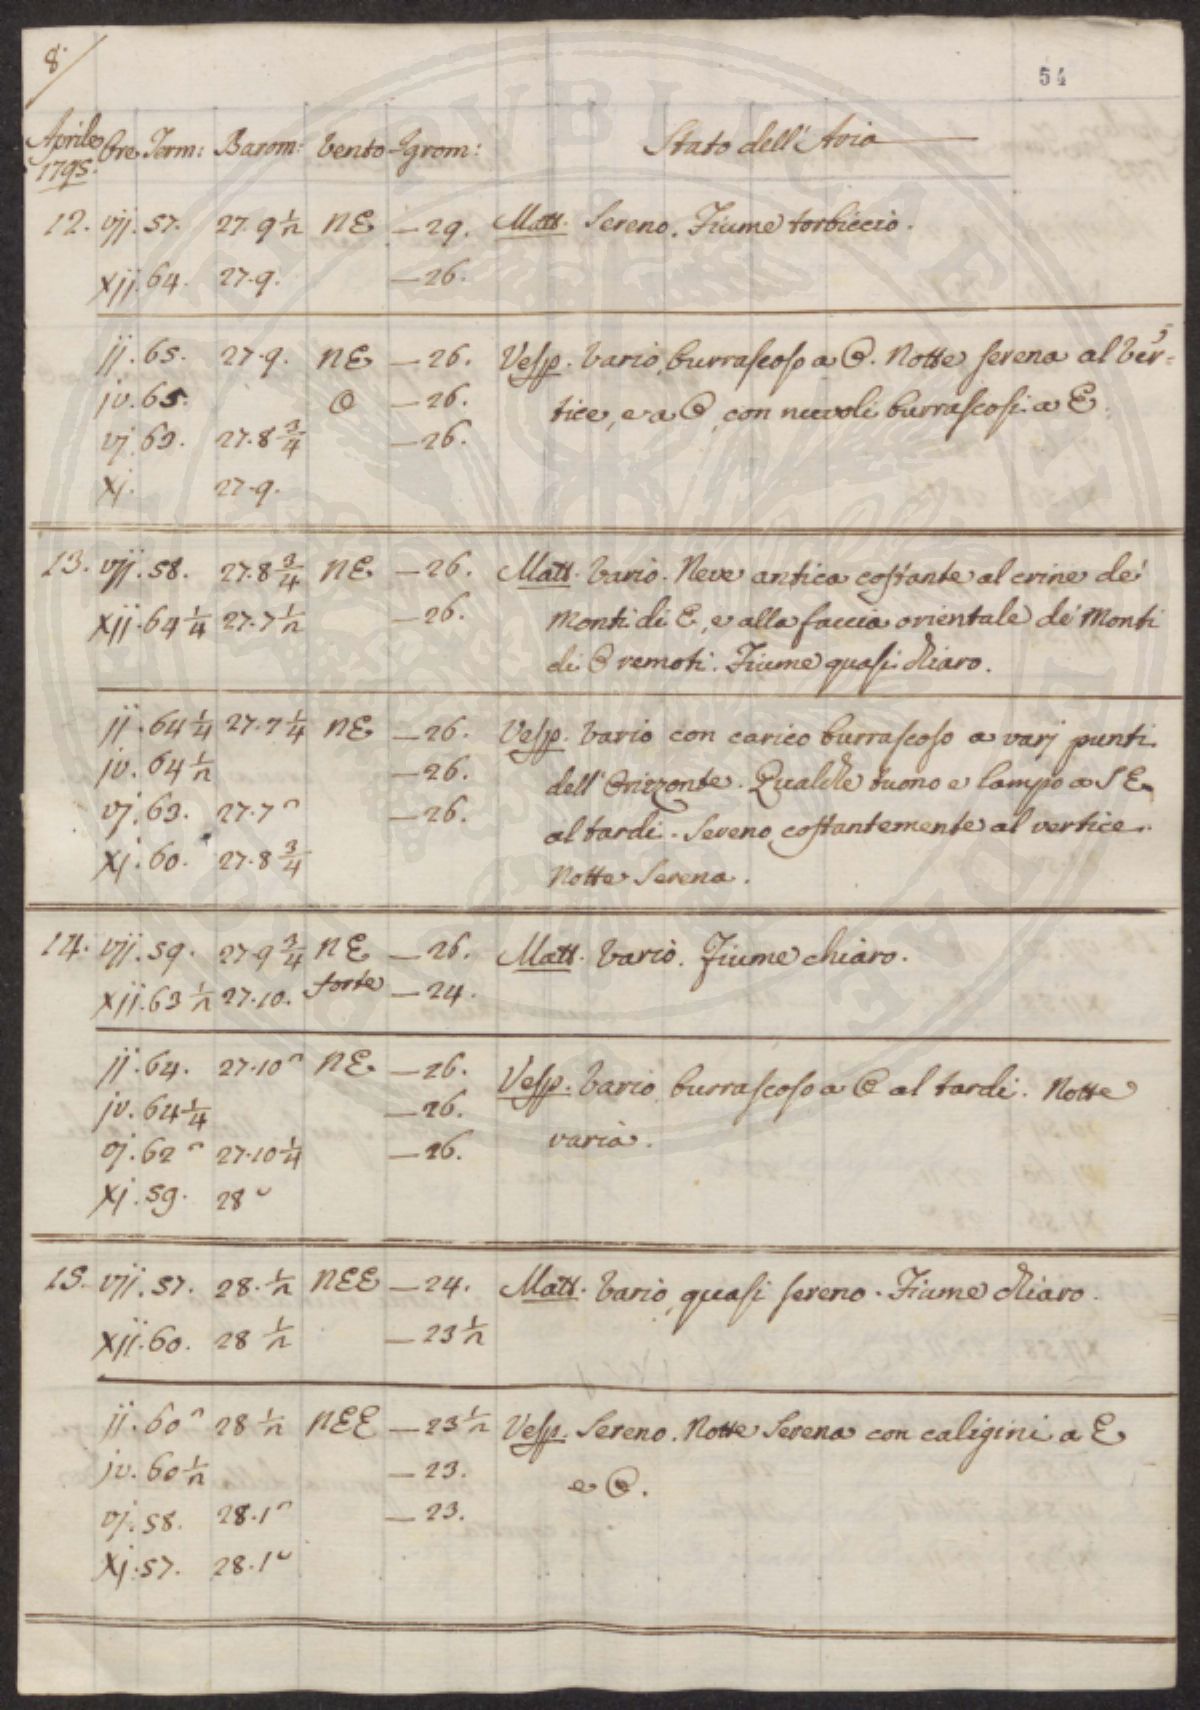 8.
54
Aprile 1795. Ore Term: Barom: Vento Igrom: Stato dell'Aria
12. vij. 57. 27.9 ½ NE —29. Matt. Sereno. Fiume torbiccio.
xij. 64. 27.9. —26.
ij. 65. 27.9. NE —26. Vesp. Vario, burrascoso a O. Notte serena al Ver=
iv. 65. O —26. tice, e a O, con nuvoli burrascosi a E.
vj. 63. 27.8 ¾ —26.
xj. 27.9.
13. vij. 58. 27.8 ¾ NE —26. Matt. Vario. Neve antica costante al crine de'
xij. 64 ¼ 27.7 ½ —26. Monti di E, e alla faccia orientale de' Monti
di O remoti. Fiume quasi chiaro.
ij. 64 ¼ 27.7 ¼ NE —26. Vesp. Vario con carico burrascoso a varj punti
iv. 64 ½ —26. dell'Orizzonte. Qualche tuono e lampo a SE
vj. 63. 27.7 —26. al tardi. Sereno costantemente al vertice.
xj. 60. 27.8 ¾ Notte Serena.
14. vij. 59. 27.9 ¾ NE —26. Matt. Vario. Fiume chiaro.
xij. 63 ½ 27.10. forte —24.
ij. 64. 27.10 NE —26. Vesp. Vario, burrascoso a O al tardi. Notte
iv. 64 ¼ —26. varia.
vj. 62 27.10 ¼ —26.
xj. 59. 28
15. vij. 57. 28. ½ NEE —24. Matt. Vario, quasi sereno. Fiume chiaro.
xij. 60. 28 ½ —23 ½
ij. 60 28 ½ NEE —23 ½ Vesp. Sereno. Notte Serena con caligini a E
iv. 60 ½ —23. e O.
vj. 58. 28.1 —23.
xj. 57. 28.1